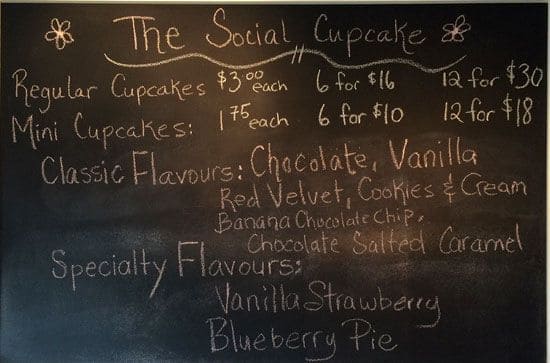 The Social Cupcake
Regular Cupcakes $3.00 each 6 for $16 12 for $30
Mini Cupcakes: 1.75 each 6 for $10 12 for $18
Classic Flavours: Chocolate, Vanilla
Red Velvet, Cookies & Cream
Banana Chocolate Chip,
Chocolate Salted Caramel
Specialty Flavours:
Vanilla Strawberry
Blueberry Pie